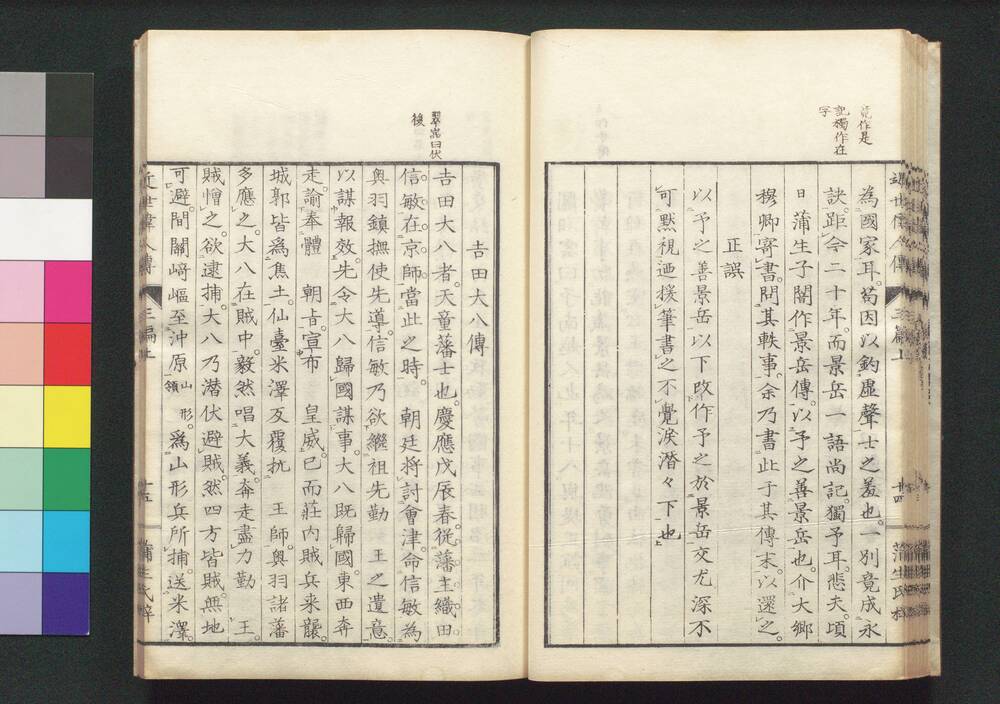 竟作是
記獨作在
字
為國家耳。苟因以釣虛聲士之羞也。一別竟成永
訣距今二十年。而景岳一語尚記獨予耳悲夫。頃
日蒲生子闇作景岳傳。以予之善景岳也。介大鄉
穆卿寄書。問其軼事。余乃書此于其傳末。以還之。
正誤
以予之善景岳以下改作予之於景岳交尤深不
可默視迺援筆書之不覺淚潛々下也
近世偉人傳
三編上
廿四
蒲生氏梓
曰伏
後
吉田大八傳
吉田大八者。天童藩士也。慶應戊辰春。從藩主織田
信敏在京師。當此之時。朝廷將討會津。命信敏為
奧羽鎮撫使先導。信敏乃欲繼祖先勤 王之遺意。
以謀報效。先令大八歸國謀事。大八既歸國。東西奔
走。諭奉體 朝旨宣布 皇威。已而莊內賊兵来襲。
城郭皆為焦土。仙臺米澤反覆抗 王師。奧羽諸藩
多應之。大八在賊中。毅然唱大義。奔走盡力勤 王。
賊憎之。欲逮捕。大八乃潛伏避賊。然四方皆賊。無地
可避。間關﨑嶇至沖原山形領。為山形兵所捕。送米澤。
近世偉人傳
三編上
廿五
蒲生氏梓